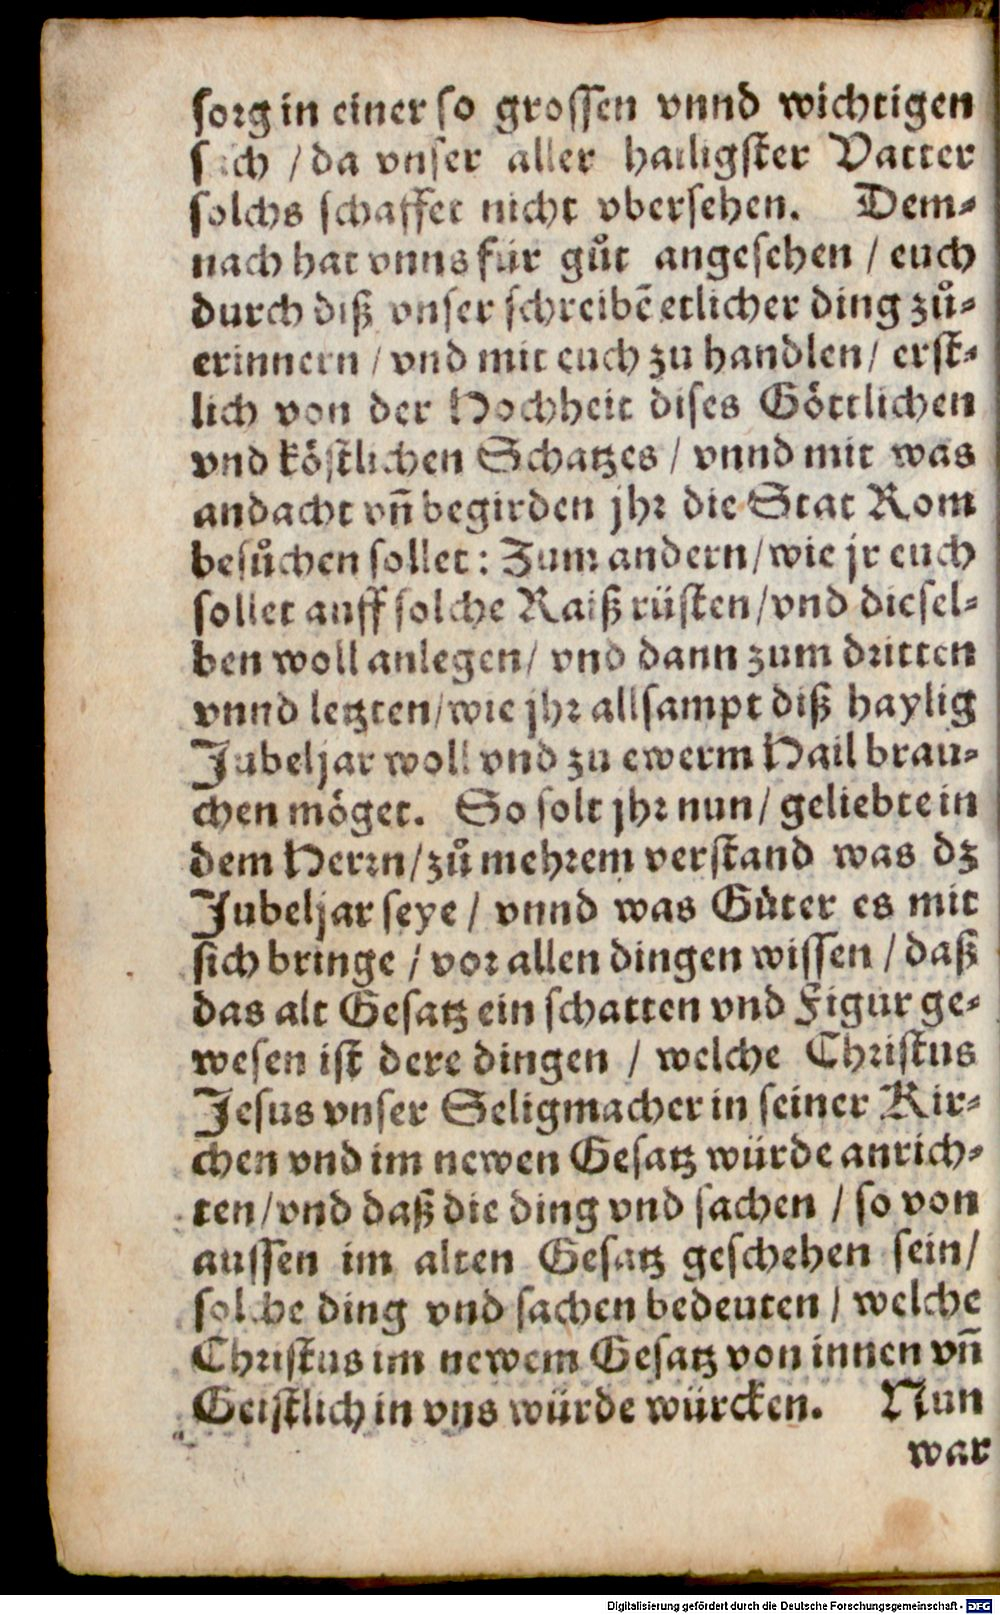 sorg in einer so grossen vnnd wichtigen
sach / da vnser aller hailigster Vatter
solchs schaffet nicht vbersehen. Dem-
nach hat vnns für gůt angesehen / euch
durch diß vnser schreibē etlicher ding zů-
erinnern / vnd mit euch zu handlen / erst-
lich von der Hochheit dises Göttlichen
vnd köstlichen Schatzes / vnnd mit was
andacht vn̄ begirden jhr die Stat Rom
besůchen sollet: Zum andern / wie jr euch
sollet auff solche Raiß rüsten / vnd diesel-
ben woll anlegen / vnd dann zum dritten
vnnd letzten / wie jhr allsampt diß haylig
Jubeljar woll vnd zu ewerm Hail brau-
chen möget. So solt jhr nun / geliebte in
dem Herrn / zů mehrem verstand was dz
Jubeljar seye / vnnd was Güter es mit
sich bringe / vor allen dingen wissen / daß
das alt Gesatz ein schatten vnd Figur ge-
wesen ist dere dingen / welche Christus
Jesus vnser Seligmacher in seiner Kir-
chen vnd im newen Gesatz würde anrich-
ten / vnd daß die ding vnd sachen / so von
aussen im alten Gesatz geschehen sein /
solche ding vnd sachen bedeuten / welche
Christus im newem Gesatz von innen vn̄
Geistlich in vns würde würcken. Nun
war
Digitalisierung gefördert durch die Deutsche Forschungsgemeinschaft - DFG